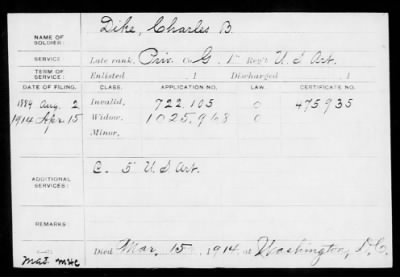 NAME OF SOLDIER: Dike, Charles B.
SERVICE Late rank, Priv. Co. G. 1" Reg't U. S. Art.
TERM OF SERVICE: Enlisted , 1 Discharged , 1
DATE OF FILING. CLASS. APPLICATION NO. LAW. CERTIFICATE NO.
1889 Aug. 2 Invalid, 722,105 0 475,935
1914 Apr. 15 Widow, 1025,968 0
Minor,
ADDITIONAL SERVICES: C. 5" U. S. Art.
REMARKS:
Died Mar. 15, 1914, at Washington, D.C.